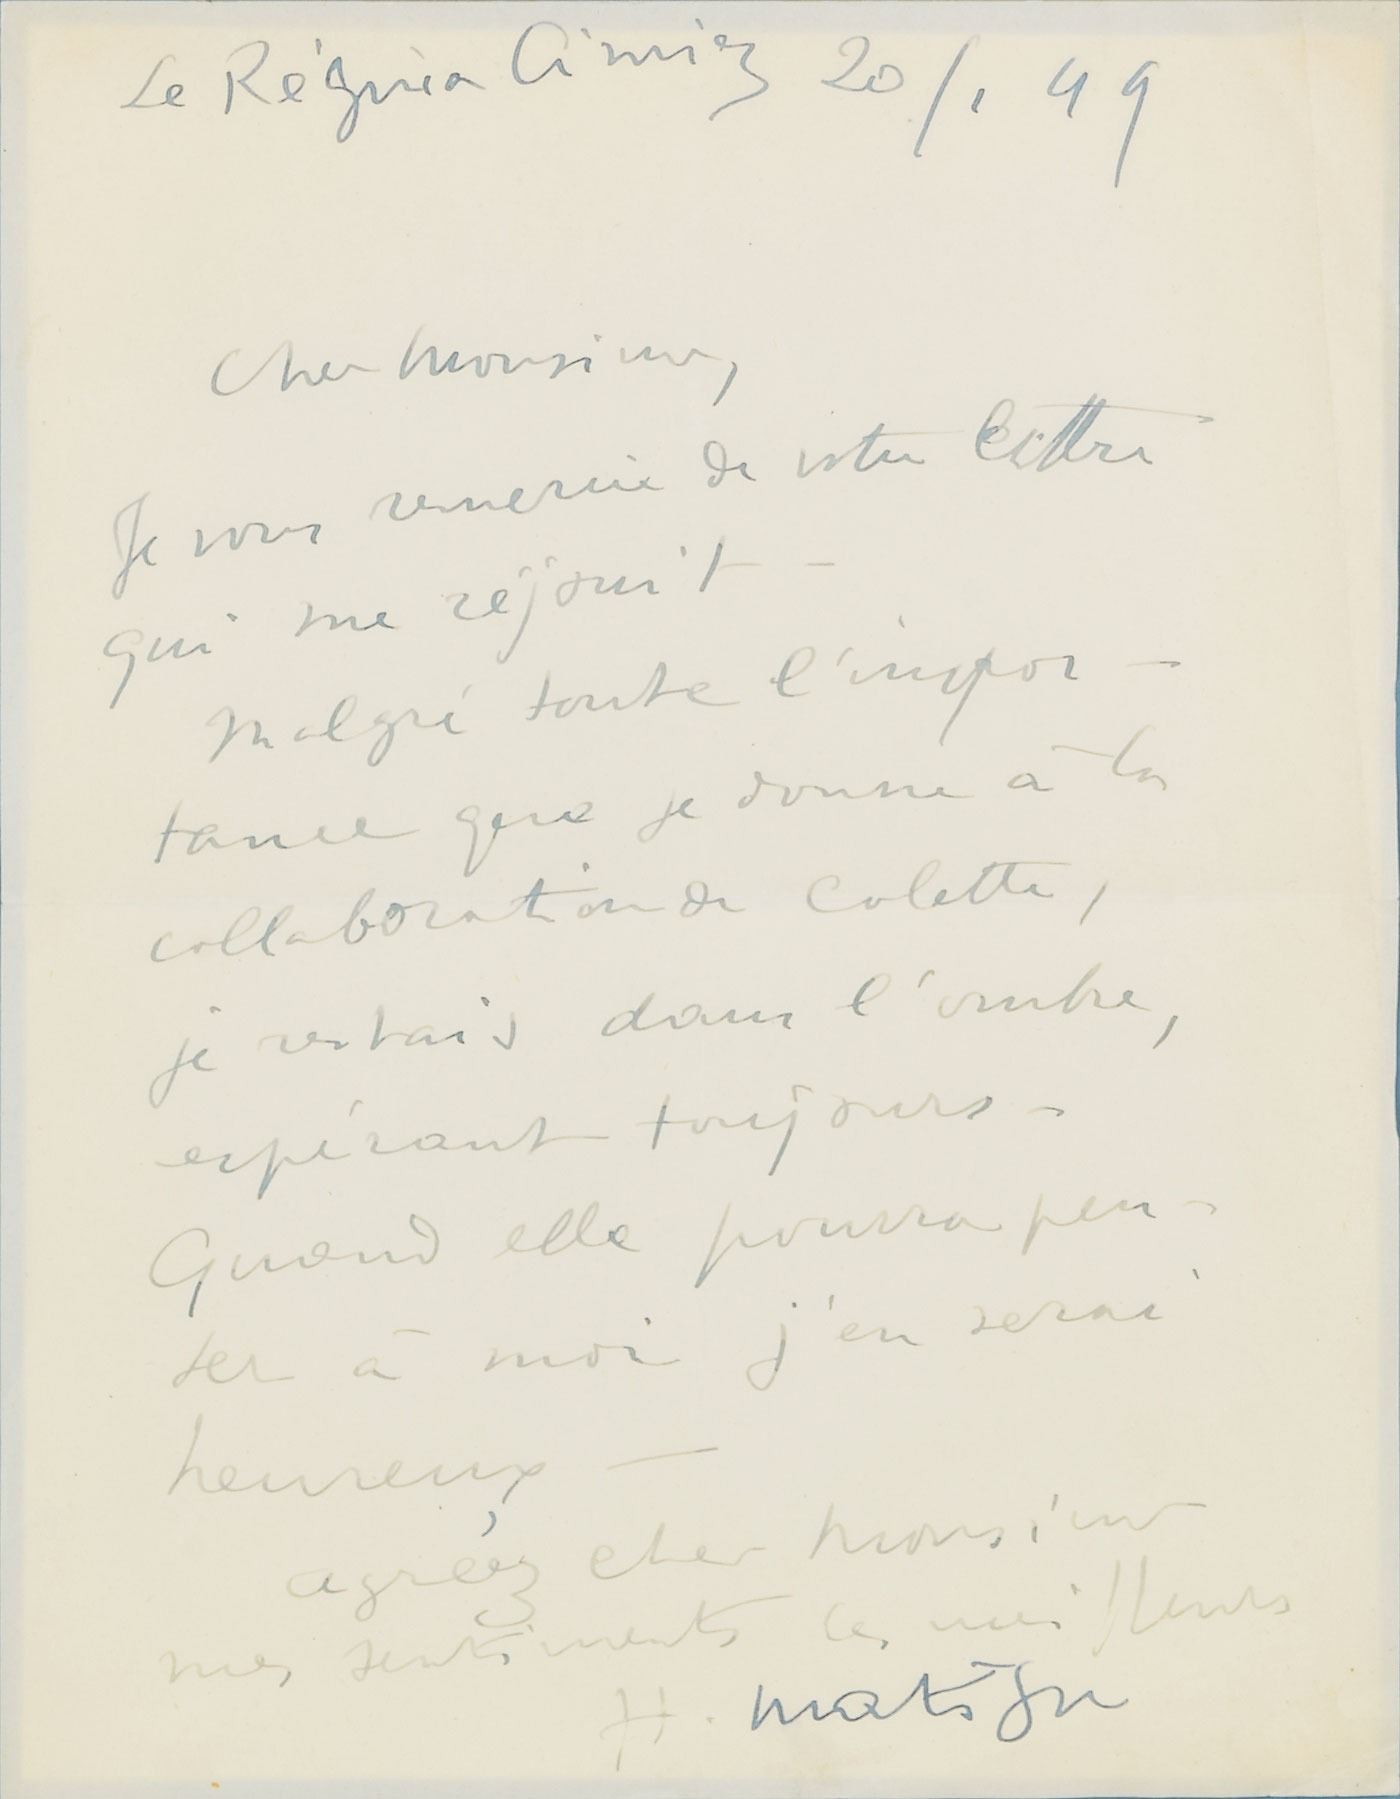 Le Régina Cimiez 20/1 49
Cher Monsieur,
Je vous remercie de votre lettre
qui me réjouit -
Malgré toute l'impor-
tance que je donne à la
collaboration de Colette,
je restais dans l'ombre,
espérant toujours -
Quand elle pourra pen-
ser à moi j'en serai
heureux —
agréez cher Monsieur
mes sentiments les meilleurs
H. Matisse